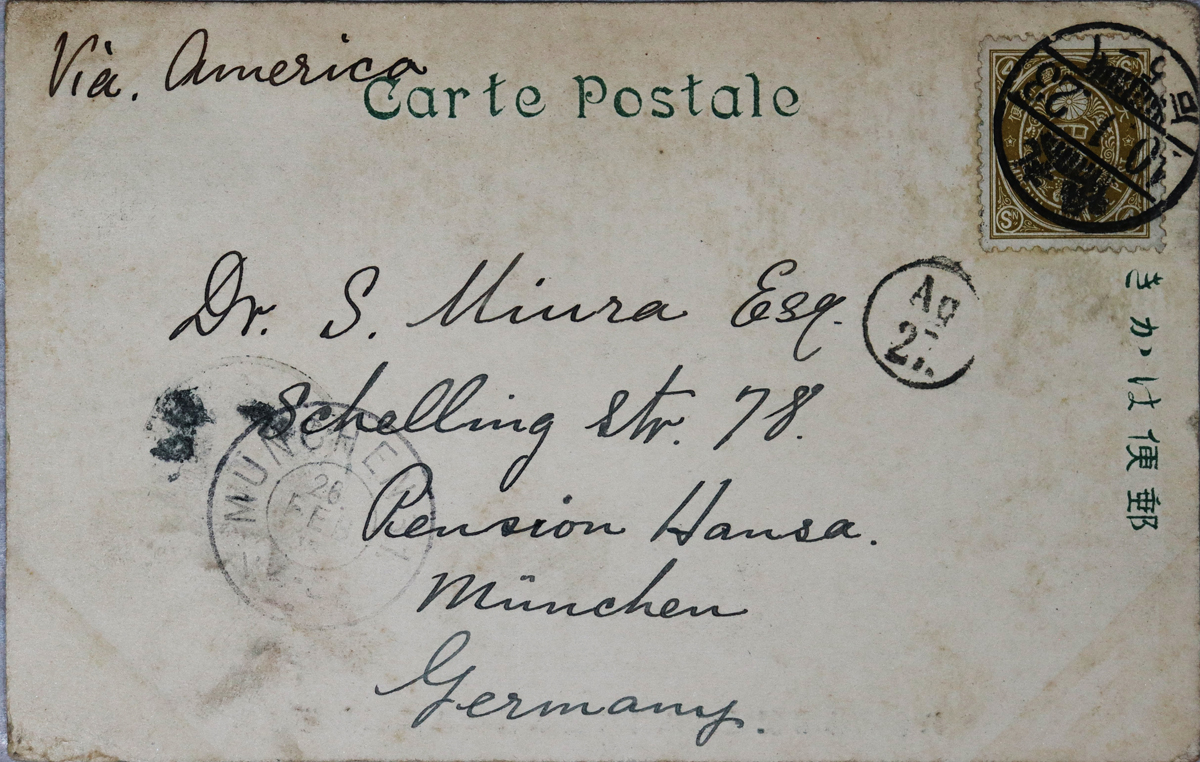 Via. America
Carte Postale
Dr. S. Miura Esq.
Ag
Schelling Str. 78.
MÜNCHEN
26
Pension Hansa.
München
Germany.
きかは便郵
Sn